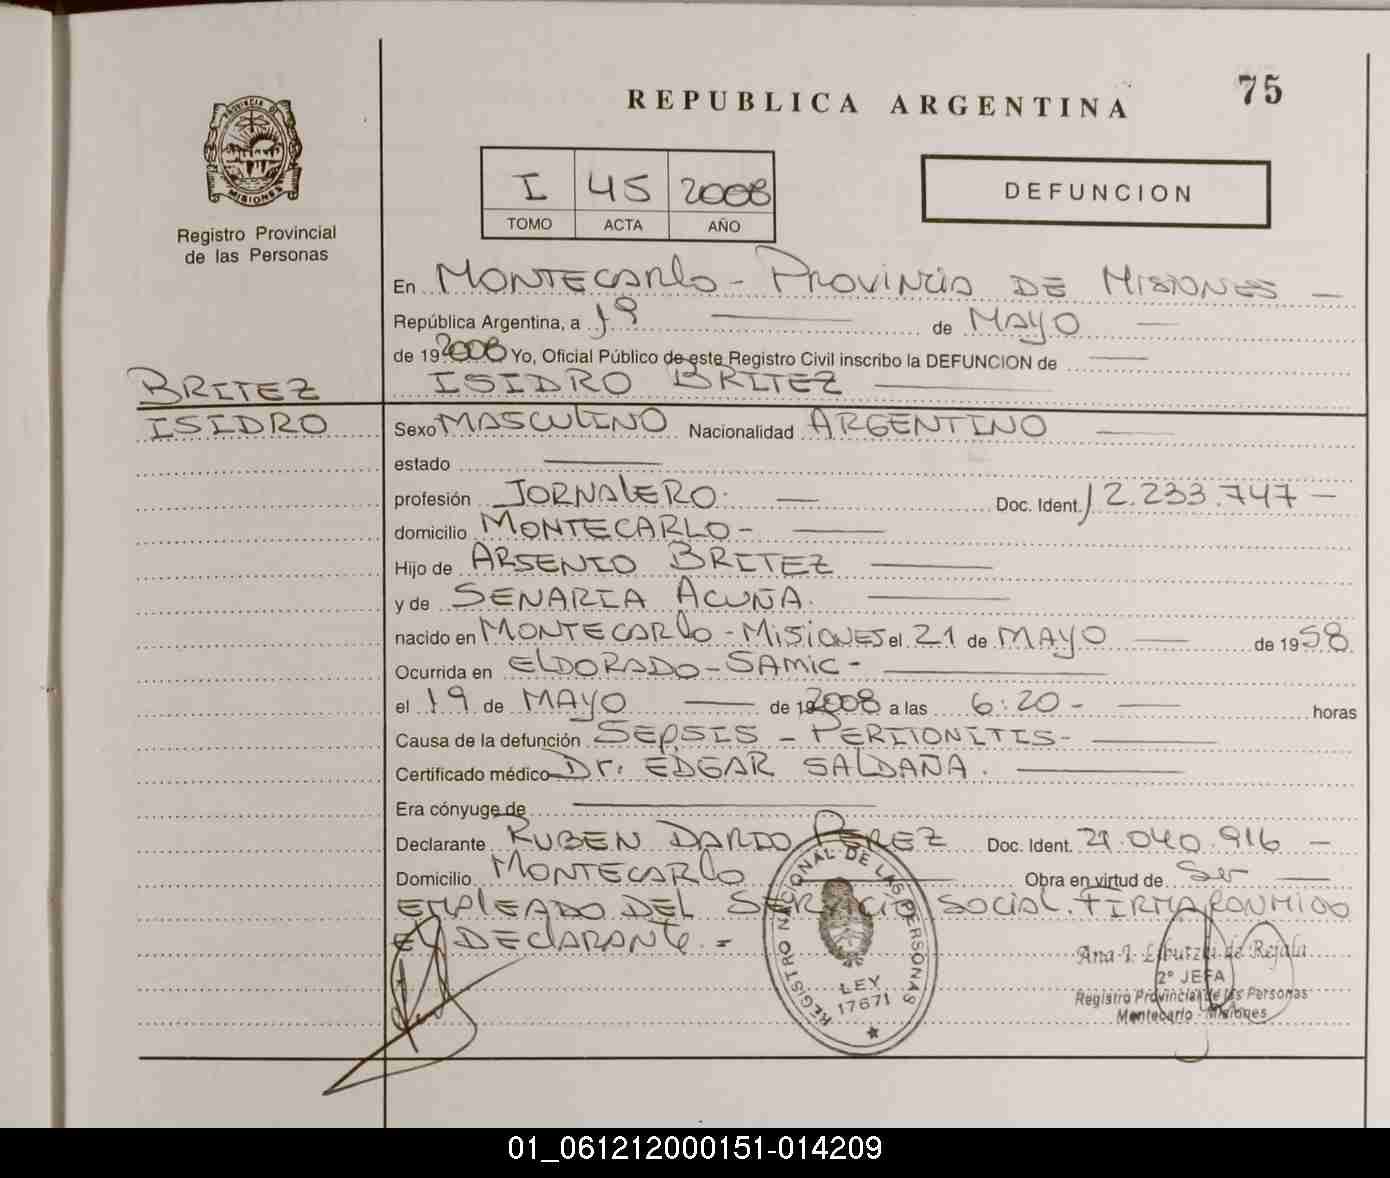 75
REPUBLICA ARGENTINA
PROVINCIA DE
MISIONES
Registro Provincial
de las Personas
I 45 2008
TOMO ACTA AÑO
DEFUNCION
En MONTECARLO - PROVINCIA DE MISIONES -
República Argentina, a 19 de MAYO
de 19 2008 Yo, Oficial Público de este Registro Civil inscribo la DEFUNCION de
ISIDRO BRITEZ
BRITEZ
ISIDRO
Sexo MASCULINO Nacionalidad ARGENTINO
estado
profesión JORNALERO. Doc. Ident. 12.233.747 -
domicilio MONTECARLO -
Hijo de ARSENIO BRITEZ
y de SENARIA ACUÑA.
nacido en MONTECARLO - MISIONES el 21 de MAYO de 1958.
Ocurrida en ELDORADO - SAMIC -
el 19 de MAYO de 19 2008 a las 6:20 - horas
Causa de la defunción SEPSIS - PERITONITIS -
Certificado médico Dr. EDGAR SALDAÑA.
Era cónyuge de
Declarante RUBEN DARIO PEREZ Doc. Ident. 21.040.916 -
Domicilio MONTECARLO Obra en virtud de Ser
EMPLEADO DEL SERVICIO SOCIAL. FIRMA CONMIGO
EL DECLARANTE. =
REGISTRO NACIONAL DE LAS PERSONAS
LEY
17671
Ana I. de Rejala
2º JEFA
Registro Provincial de las Personas
Montecarlo - Misiones
01_061212000151-014209